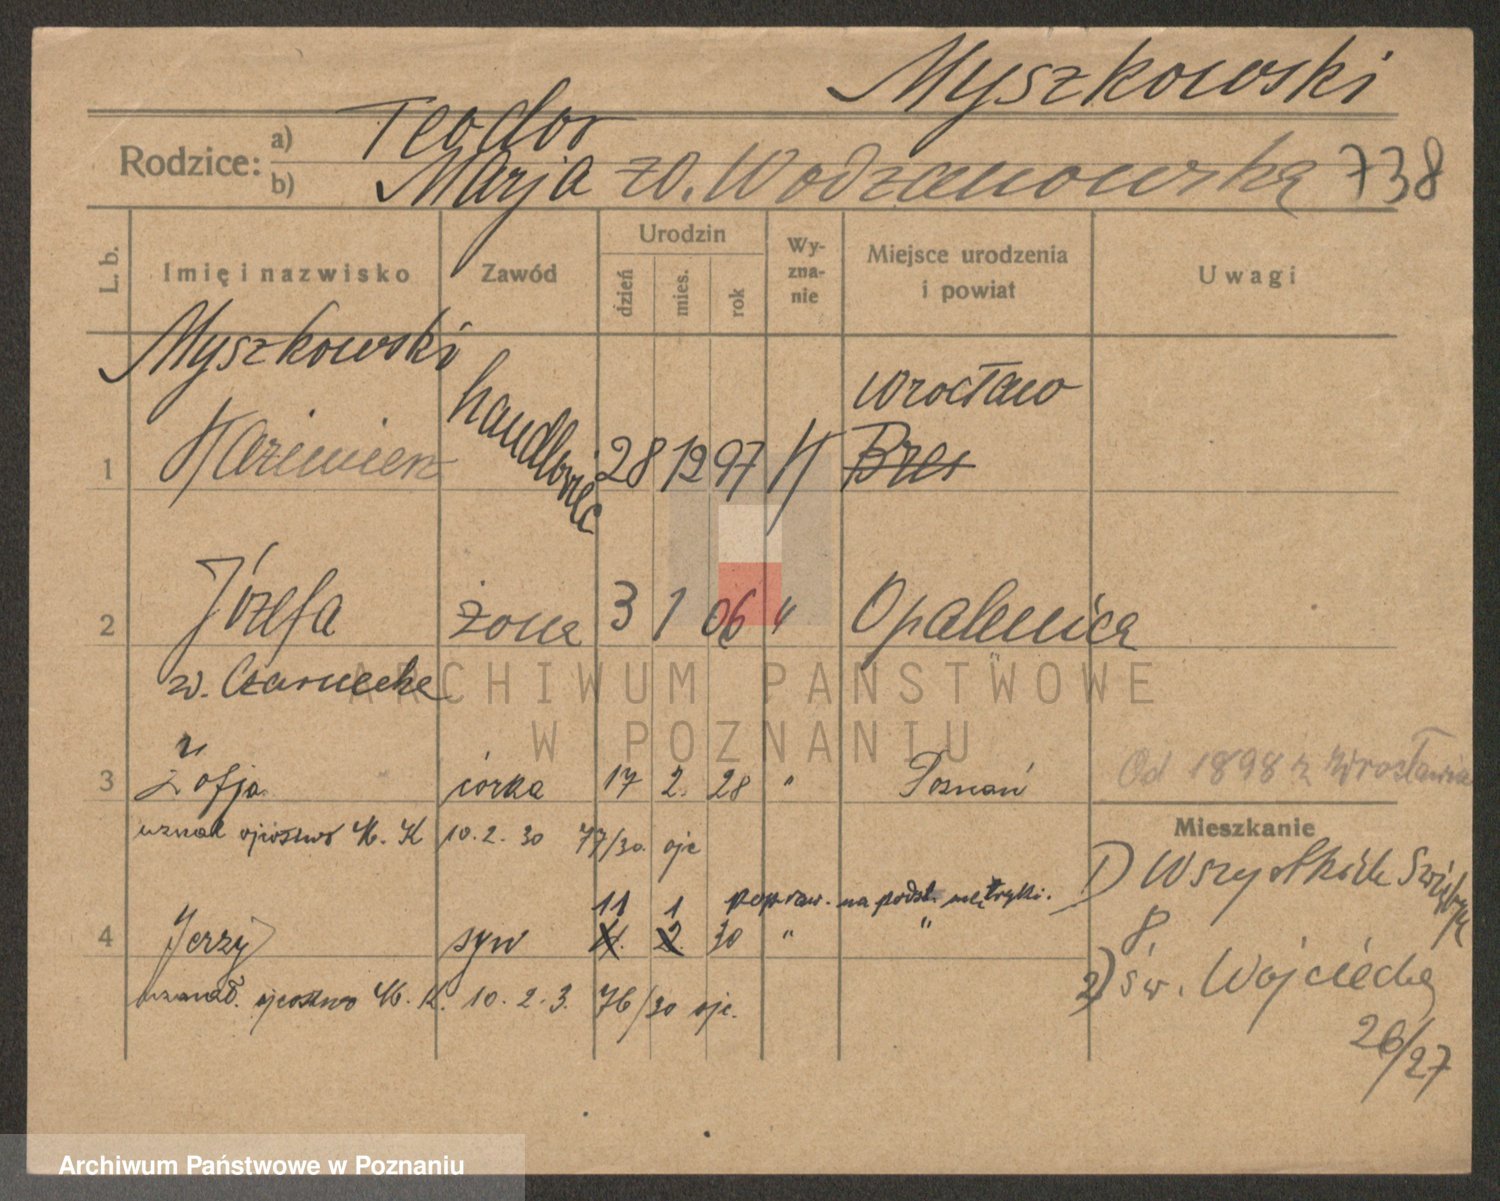 Myszkowski
Rodzice: a) Teodor
b) Marja zd. Wodzanowska 738
L. b. Imię i nazwisko Zawód Urodzin dzień mies. rok Wy-zna-nie Miejsce urodzenia i powiat Uwagi
Myszkowski
Wrocław
1 Kazimierz handlowiec 28 12 97 K Bres
2 Józefa żona 3 1 06 " Opalenica
z. Czarnecka
ARCHIWUM PAŃSTWOWE
W POZNANIU
3 Zofja córka 17 2. 28 " Poznań
Od 1898 z Wrocławia
Mieszkanie
uznał ojcostwo M. K 10. 2. 30 77/30. ojc
1) Wszystkich Świętych
8
11 1 popraw. na podst. metryki.
4 Jerzy syn 11. 2 30 " "
2) św. Wojciecha
26/27
uznał. ojcostwo M. K. 10. 2. 3. 76/30 ojc.
Archiwum Państwowe w Poznaniu